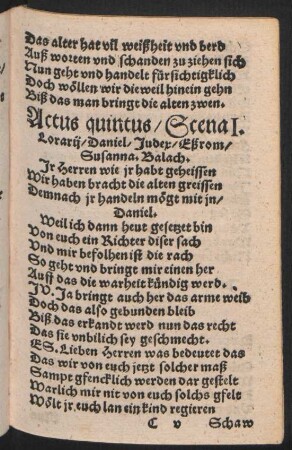 Das alter hat vil weißheit vnd berd
Auß worten vnd schanden zu ziehen sich
Nun geht vnd handelt fürsichtigklich
Doch wöllen wir die weil hinein gehn
Biß das man bringt die alten zwen.
Actus quintus / Scena I.
Lorarij / Daniel / Judex / Eßrom /
Susanna. Balach.
Jr Herren wie jr habt geheissen
Wir haben bracht die alten greissen
Demnach jr handeln mögt mit jn /
Daniel.
Weil ich dann heut gesetzet bin
Von euch ein Richter diser sach
Vnd mir befolhen ist die rach
So geht vnd bringt mir einen her
Auff das die warheit kündig werd.
JV. Ja bringt auch her das arme weib
Doch das also gebunden bleib
Biß das erkandt werd nun das recht
Das sie vnbilich sey geschmecht.
ES. Lieben Herren was bedeutet das
Das wir von euch jetzt solcher maß
Sampt gfencklich werden dar gestelt
Warlich mir nit von euch solchs gfelt
Wölt jr euch lan ein kind regieren
C v Schaw